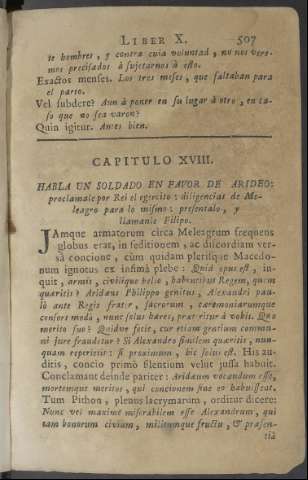 LIBER X. 507
te hombres, y contra cuia voluntad, no nos vere-
mos precisados à sujetarnos à esto.
Exactos menses. Los tres meses, que faltaban para
el parto.
Vel subdere? Aun à poner en su lugar à otro, en ca-
so que no sea varon?
Quin igitur. Antes bien.
CAPITULO XVIII.
HABLA UN SOLDADO EN FAVOR DE ARIDEO:
proclamale por Rei el egercito: diligencias de Me-
leagro para lo mismo: presentalo, y
llamanle Filipo.
JAmque armatorum circa Meleagrum frequens
globus erat, in seditionem, ac discordiam ver-
sâ concione, cùm quidam plerisque Macedo-
num ignotus ex infimâ plebe: Quid opus est, in-
quit, armis, civilique bello, habentibus Regem, quem
quæritis? Aridæus Philippo genitus, Alexandri pau-
lò ante Regis frater, sacrorum, cæremoniarumque
consors modò, nunc solus hæres, præteritur à vobis. Quo
merito suo? Quidve fecit, cur etiam gentium commu-
ni jure fraudetur? Si Alexandro similem quæritis, nun-
quam reperietis: si proximum, hic solus est. His au-
ditis, concio primò silentium velut jussa habuit.
Conclamant deinde pariter: Aridæum vocandum esse,
mortemque meritos, qui concionem sine eo habuissent.
Tum Pithon, plenus lacrymarum, orditur dicere:
Nunc vel maximè miserabilem esse Alexandrum, qui
tam bonorum civium, militumque fructu, & præsen-
tiâ